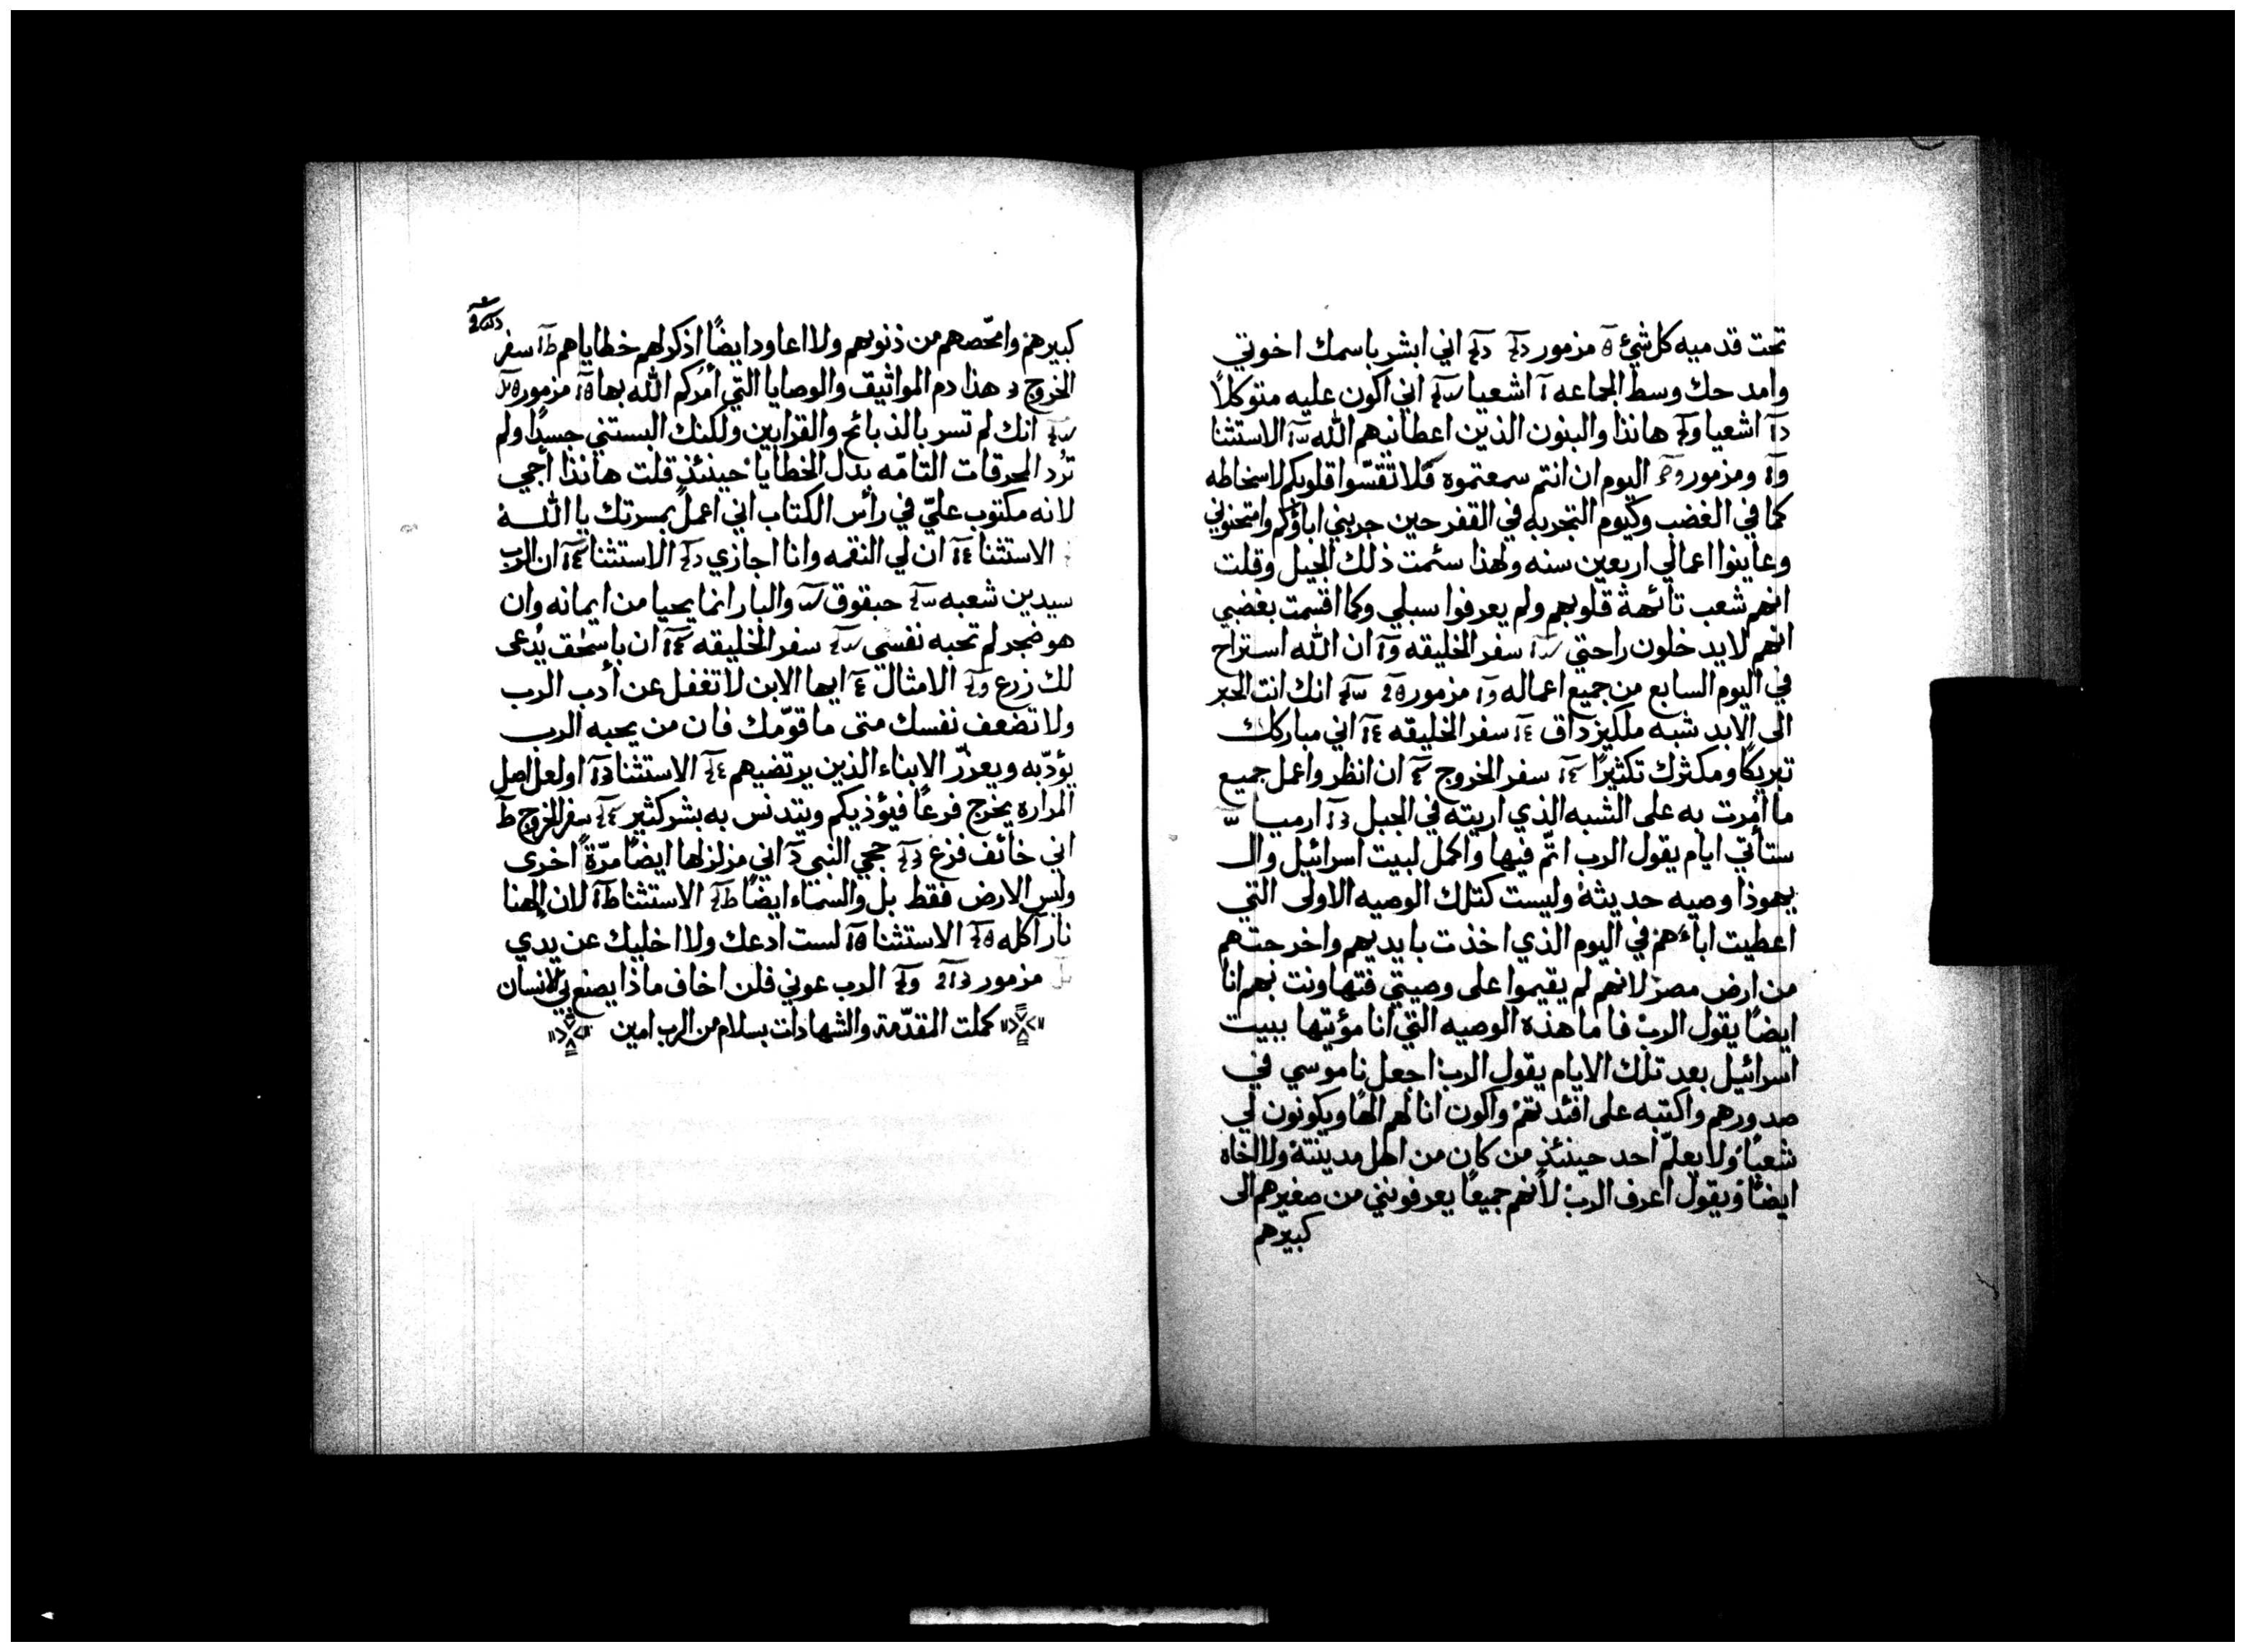 تحت قدميه كل شئ مزمور اني ابشر باسمك اخوتي
وامدحك وسط الجماعه اشعيا اني اكون عليه متوكلاً
اشعيا هانذا والبنون الذين اعطانيهم الله الاستثنا
ومزمور اليوم ان انتم سمعتموه فلا تقسّوا قلوبكم لاسخاطه
كما في الغضب وكيوم التجربه في القفر حين جربني اباؤكم وامتحنوني
وعاينوا اعمالي اربعين سنه ولهذا سئمت ذلك الجيل وقلت
انهم شعب تائهة قلوبهم ولم يعرفوا سبلي وكما اقسمت بغضبي
انهم لا يدخلون راحتي سفر الخليقه ان الله استراح
في اليوم السابع من جميع اعماله مزمور انك انت الحبر
الى الابد شبه ملكيزداق سفر الخليقه اني مباركك
تبريكًا ومكثرك تكثيرًا سفر الخروج ان انظر واعمل جميع
ما امرت به على الشبه الذي اريته في الجبل ارميا
ستأتي ايام يقول الرب اتمّ فيها واكمل لبيت اسرائيل وال
يهوذا وصيه حديثة وليست كتلك الوصيه الاولى التي
اعطيت اباءهم في اليوم الذي اخذت بايديهم واخرجتهم
من ارض مصر لانهم لم يقيموا على وصيتي فتهاونت بهم انا
ايضًا يقول الرب فاما هذه الوصيه التي انا مؤتيها ببيت
اسرائيل بعد تلك الايام يقول الرب اجعل ناموسي في
صدورهم واكتبه على افئدتهم واكون انا لهم الهًا ويكونون لي
شعبًا ولا يعلّم احد حينئذٍ من كان من اهل مدينته ولا اخاه
ايضًا ويقول اعرف الرب لأنهم جميعًا يعرفونني من صغيرهم الى
كبيرهم
كبيرهم وامحّصهم من ذنوبهم ولا اعاود ايضًا اذكر لهم خطاياهم سفر
الخروج هذا دم المواثيق والوصايا التي أمركم الله بها مزمور
انك لم تسر بالذبائح والقرابين ولكنك البستني جسدًا ولم
ترُد المحرقات التامّه بدل الخطايا حينئذٍ قلت هانذا أجي
لانه مكتوب عليّ في رأس الكتاب اني اعمل بمسرتك يا الله
الاستثنا ان لي النقمه وانا اجازي الاستثنا ان الرب
سيدين شعبه حبقوق والبار انما يحيا من ايمانه وان
هو ضجر لم تحبه نفسي سفر الخليقه ان باسحق يُدعى
لك زرع الامثال ايها الابن لا تغفل عن أدب الرب
ولا تضعف نفسك متى ما قوّمك فان من يحبه الرب
يؤدّبه ويعزّر الابناء الذين يرتضيهم الاستثنا او لعل اصل
المراره يخرج فرعًا فيؤذيكم ويتدنس به بشر كثير سفر الخروج
اني خائف فزع حجي النبي اني مزلزلها ايضًا مرّةً اخرى
وليس الارض فقط بل والسماء ايضًا الاستثنا لان الهنا
نار آكله الاستثنا لست ادعك ولا اخليك عن يدي
مزمور الرب عوني فلن اخاف ماذا يصنع بي الانسان
كملت المقدّمة والشهادات بسلام من الرب امين